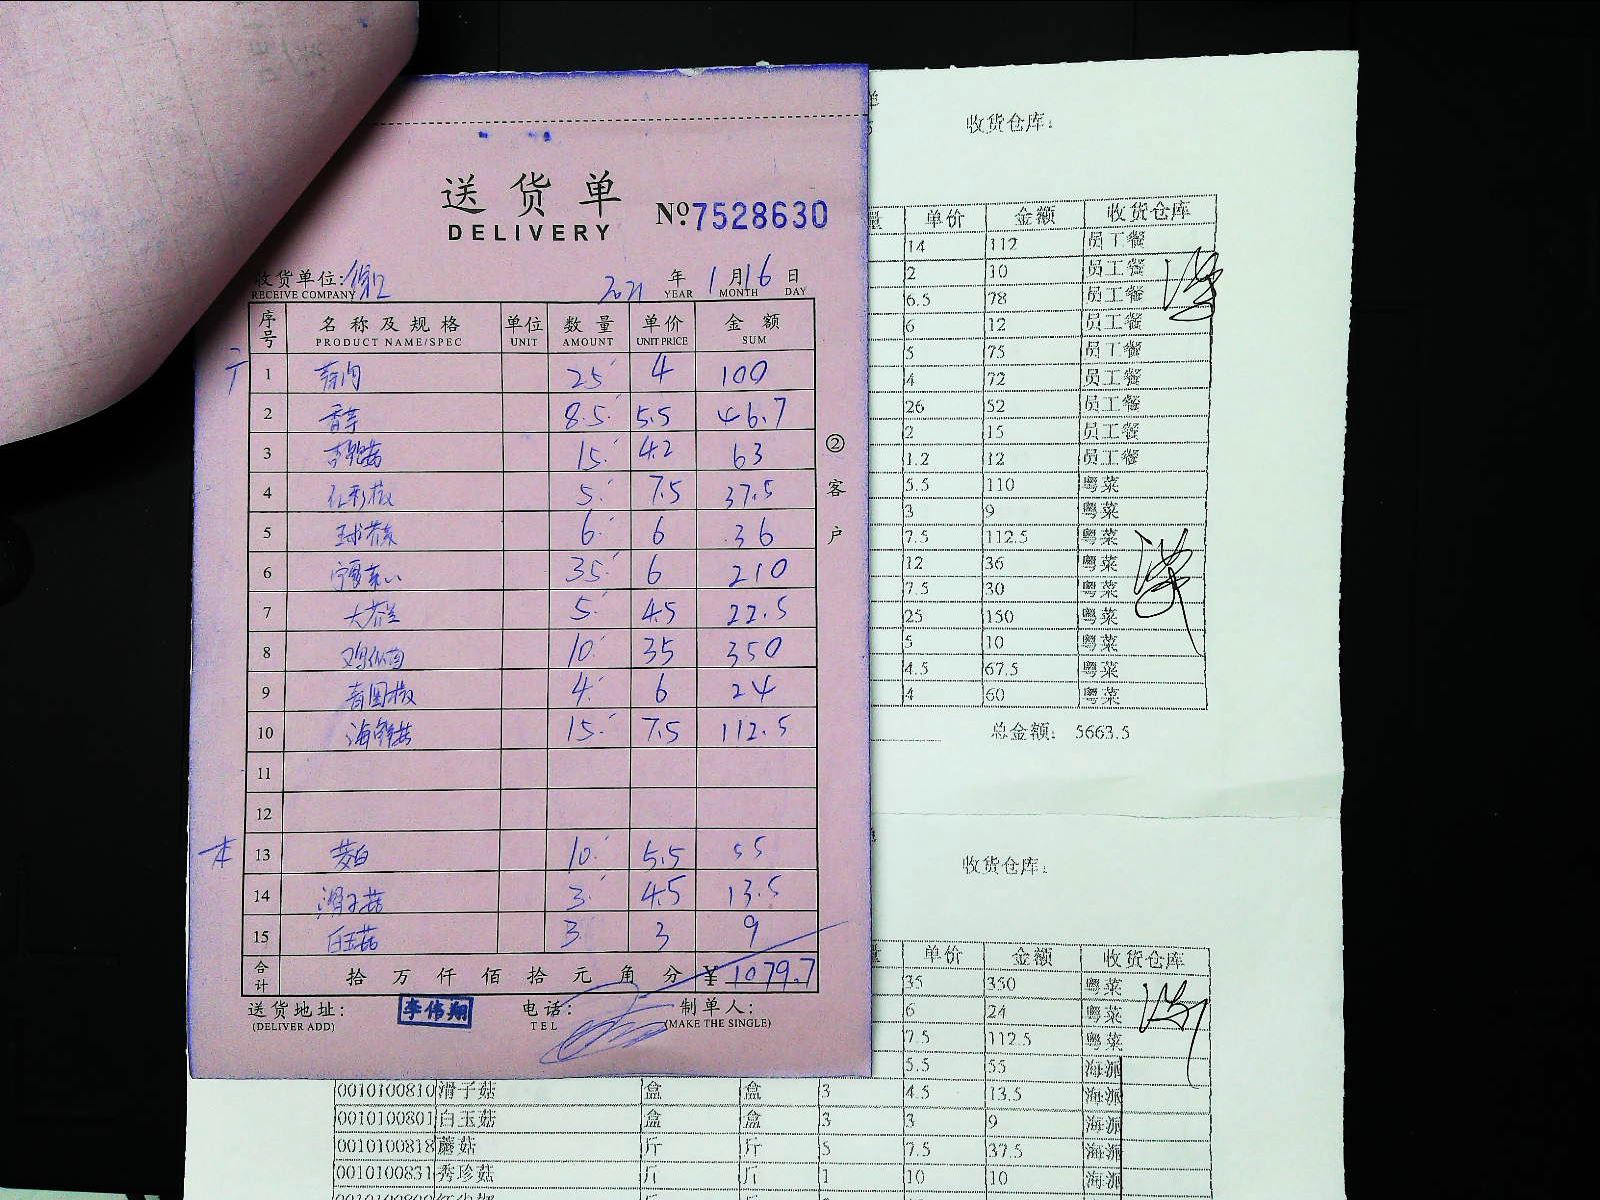 送货单
DELIVERY
№7528630
收货单位:徐汇 2021 年 1 月 16 日
RECEIVE COMPANY YEAR MONTH DAY
序号 名称及规格 单位 数量 单价 金额
PRODUCT NAME/SPEC UNIT AMOUNT UNIT PRICE SUM
1 25 4 100
2 香芹 8.5 5.5 46.7
3 杏鲍菇 15 4.2 63
4 红彩椒 5 7.5 37.5
5 球茴香 6 6 36
6 宁夏菜心 35 6 210
7 大芥兰 5 4.5 22.5
8 鸡枞菌 10 35 350
9 青圆椒 4 6 24
10 海鲜菇 15 7.5 112.5
11
12
本 13 茭白 10 5.5 55
14 滑子菇 3 4.5 13.5
15 白玉菇 3 3 9
合计 拾万仟佰拾元角分 ¥1079.7
送货地址: 李伟翔 电话: 制单人:
(DELIVER ADD) TEL (MAKE THE SINGLE)
②客户
单
收货仓库:
量 单价 金额 收货仓库
14 112 员工餐
2 10 员工餐
6.5 78 员工餐
6 12 员工餐
5 75 员工餐
4 72 员工餐
26 52 员工餐
2 15 员工餐
1.2 12 员工餐
5.5 110 粤菜
3 9 粤菜
7.5 112.5 粤菜
12 36 粤菜
7.5 30 粤菜
25 150 粤菜
5 10 粤菜
4.5 67.5 粤菜
4 60 粤菜
总金额: 5663.5
单
收货仓库:
量 单价 金额 收货仓库
35 350 粤菜
6 24 粤菜
7.5 112.5 粤菜
5.5 55 海派
0010100810 滑子菇 盒 盒 3 4.5 13.5 海派
0010100801 白玉菇 盒 盒 3 3 9 海派
0010100818 蘑菇 斤 斤 5 7.5 37.5 海派
0010100831 秀珍菇 斤 斤 1 10 10 海派